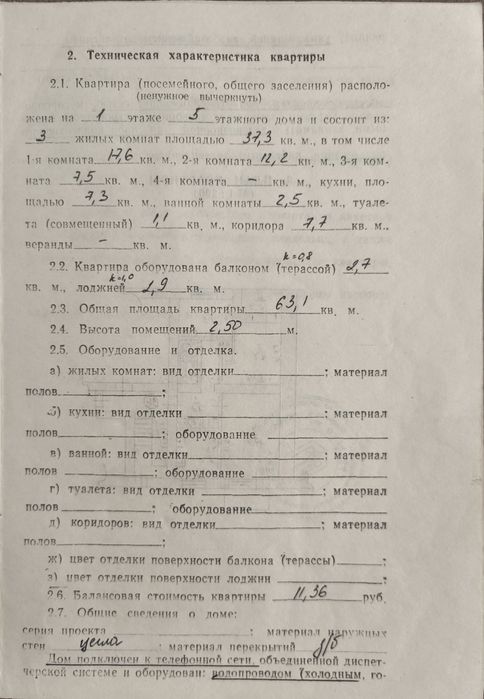 2. Техническая характеристика квартиры
2.1. Квартира (посемейного, общего заселения) располо-
(ненужное вычеркнуть)
жена на 1 этаже 5 этажного дома и состоит из:
3 жилых комнат площадью 37,3 кв. м., в том числе
1-я комната 17,6 кв. м., 2-я комната 12,2 кв. м., 3-я ком-
ната 7,5 кв. м., 4-я комната – кв. м., кухни, пло-
щадью 7,3 кв. м., ванной комнаты 2,5 кв. м., туале-
та (совмещенный) 1,1 кв. м., коридора 7,7 кв. м.,
веранды – кв. м.
k=0,8
2.2. Квартира оборудована балконом (терассой) 2,7
k=1,0
кв. м., лоджией 2,9 кв. м.
2.3. Общая площадь квартиры 63,1 кв. м.
2.4. Высота помещений 2,50 м.
2.5. Оборудование и отделка.
а) жилых комнат: вид отделки ; материал
полов ;
б) кухни: вид отделки ; материал
полов ; оборудование
в) ванной: вид отделки ; материал
полов ; оборудование
г) туалета: вид отделки ; материал
полов ; оборудование
д) коридоров: вид отделки ; материал
полов ;
ж) цвет отделки поверхности балкона (терассы) ;
з) цвет отделки поверхности лоджии ;
2.6. Балансовая стоимость квартиры 11,36 руб.
2.7. Общие сведения о доме:
серия проекта ; материал наружных
стен ; материал перекрытий ж/б
Дом подключен к телефонной сети, объединенной диспет-
черской системе и оборудован: водопроводом (холодным, го-